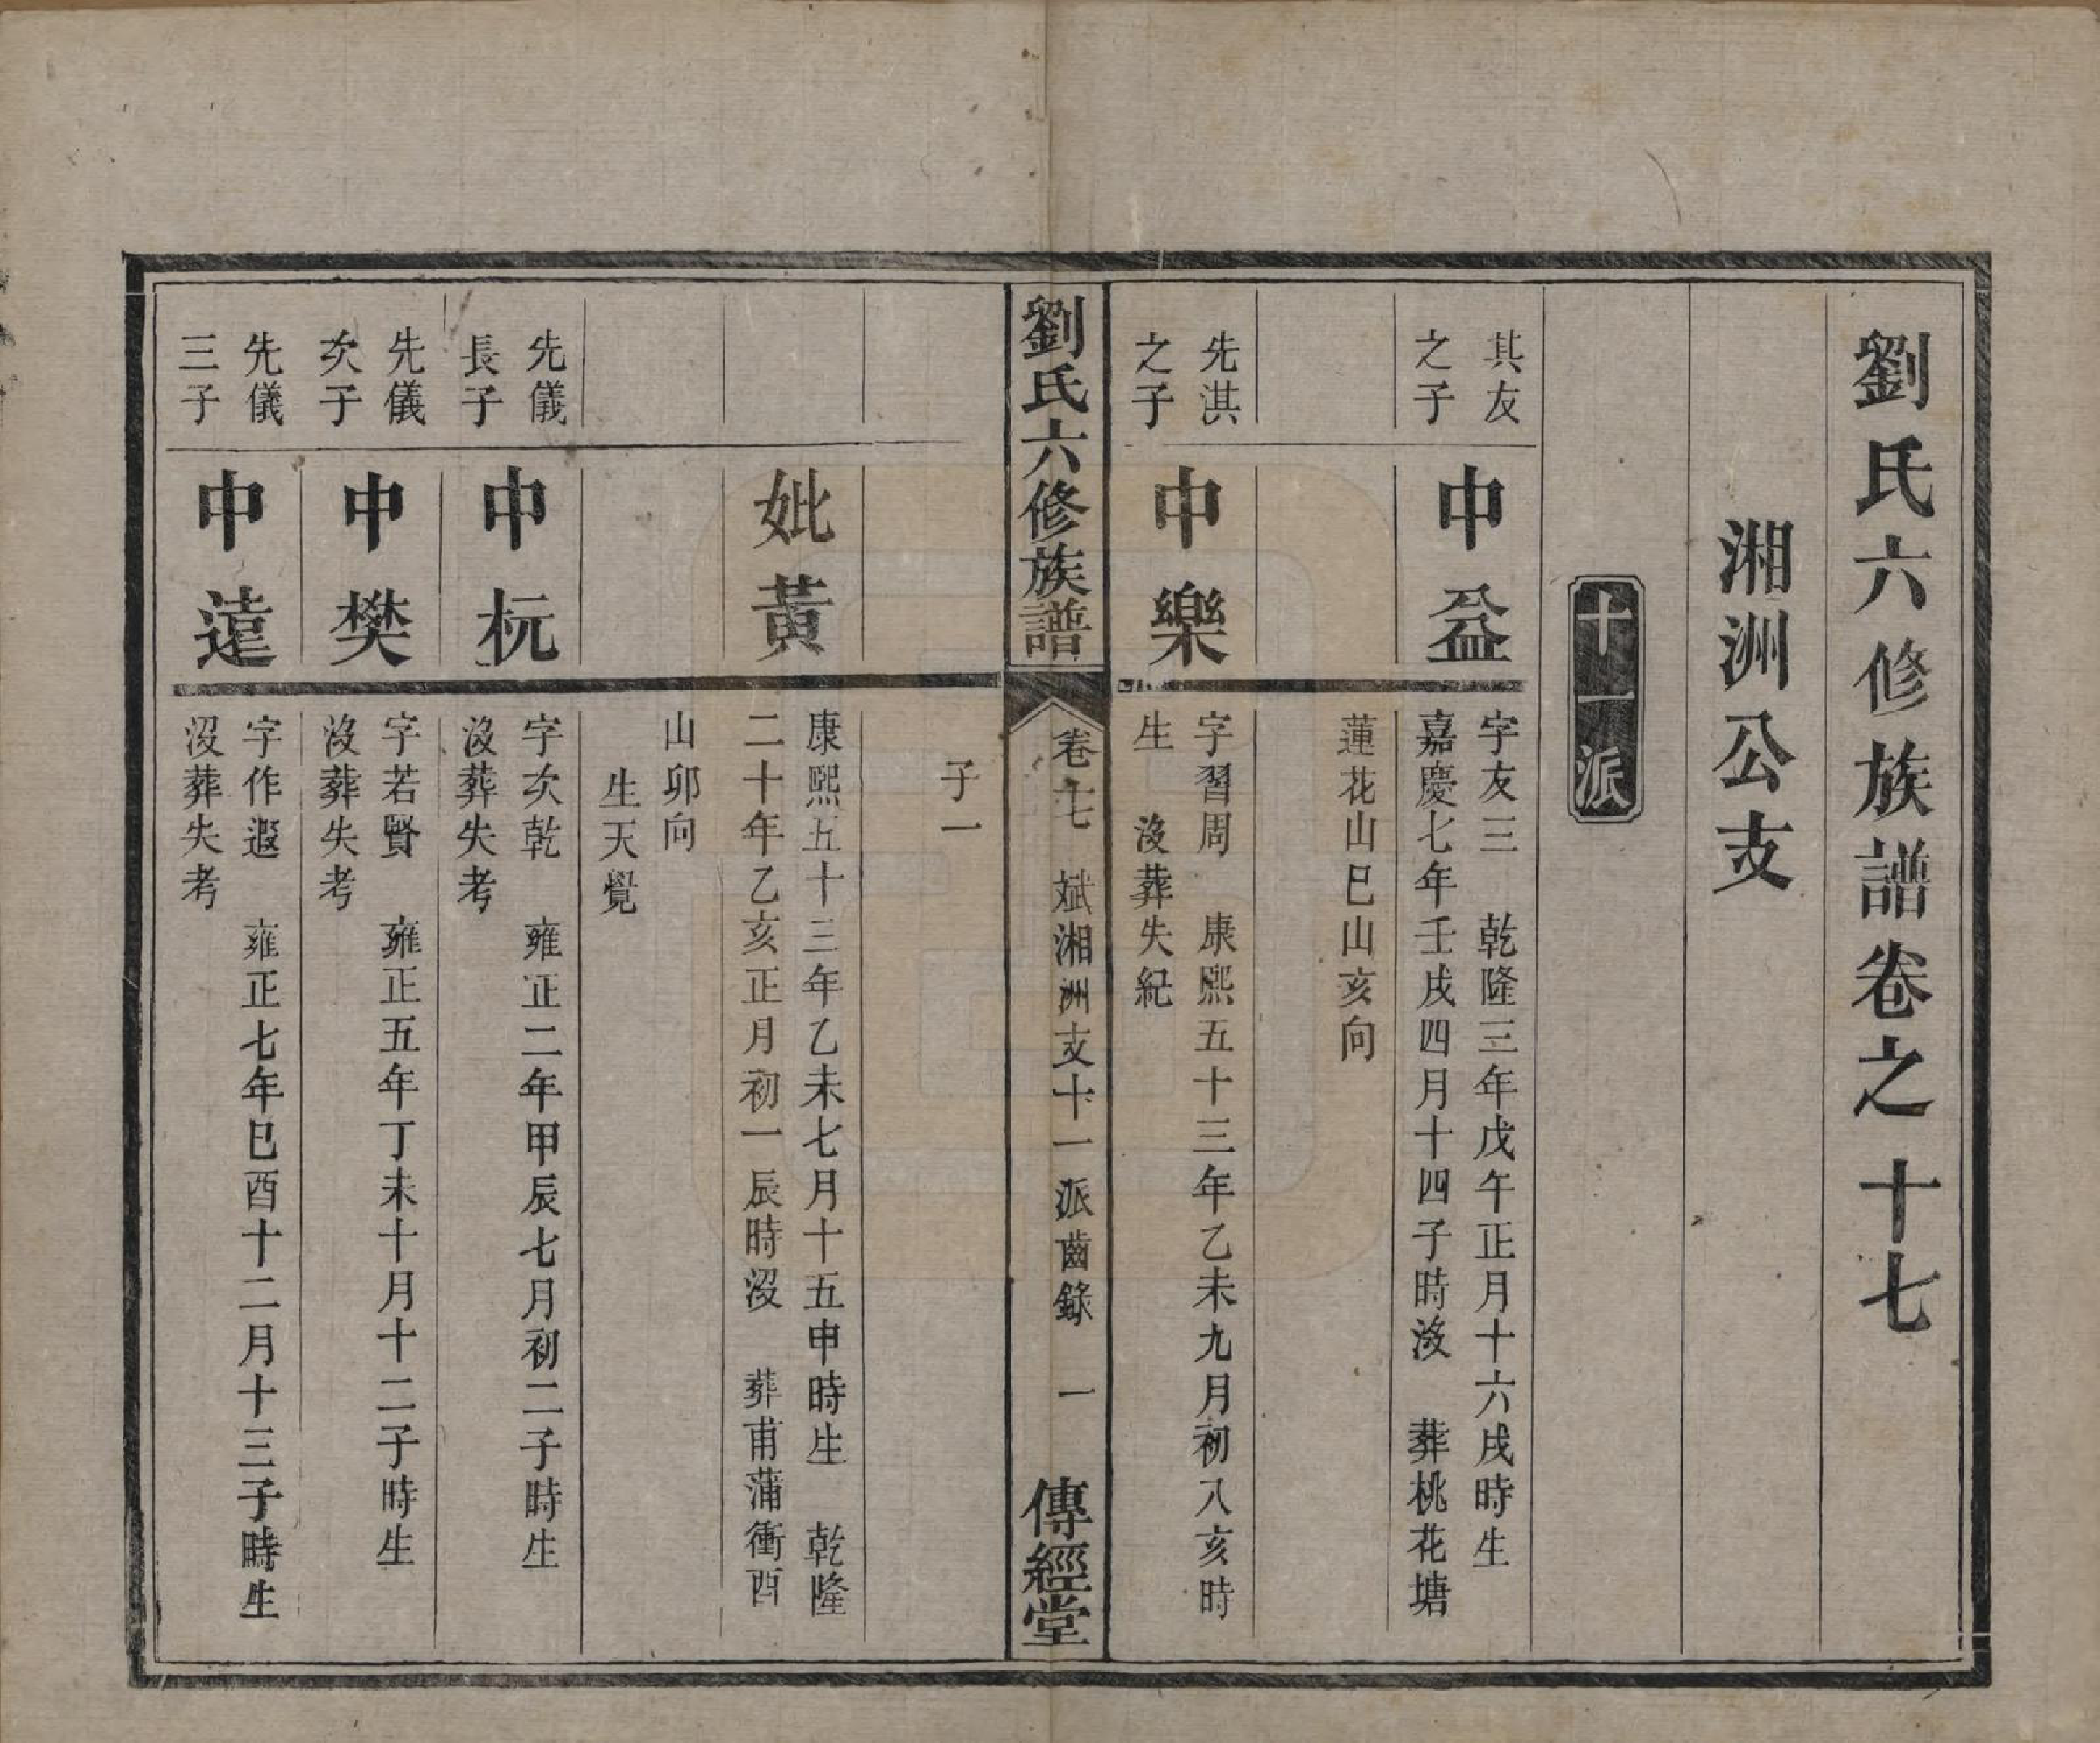 劉氏六修族譜卷之十七
湘洲公支
十一派
其友
之子
中益
字友三 乾隆三年戊午正月十六戌時生
嘉慶七年壬戌四月十四子時沒 葬桃花塘
蓮花山巳山亥向
先淇
之子
中樂
字習周 康熙五十三年乙未九月初八亥時
生 沒葬失紀
劉氏六修族譜
卷七 斌湘洲支十一派齒錄 一
傳經堂
子一
妣黃
康熙五十三年乙未七月十五申時生 乾隆
二十年乙亥正月初一辰時沒 葬甫蒲衝酉
山卯向
生天覺
先儀
長子
中杬
字次乾 雍正二年甲辰七月初二子時生
沒葬失考
先儀
次子
中樊
字若賢 雍正五年丁未十月十二子時生
沒葬失考
先儀
三子
中遠
字作遐 雍正七年巳酉十二月十三子時生
沒葬失考